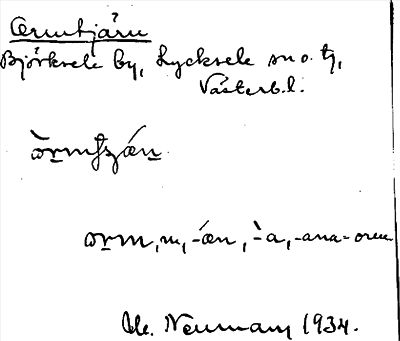 Ormtjärn
Björksele by, Lycksele sn o. tg,
Västerb.l.
orm, m, -æn, -a, -ana - orm
Neuman, 1934.